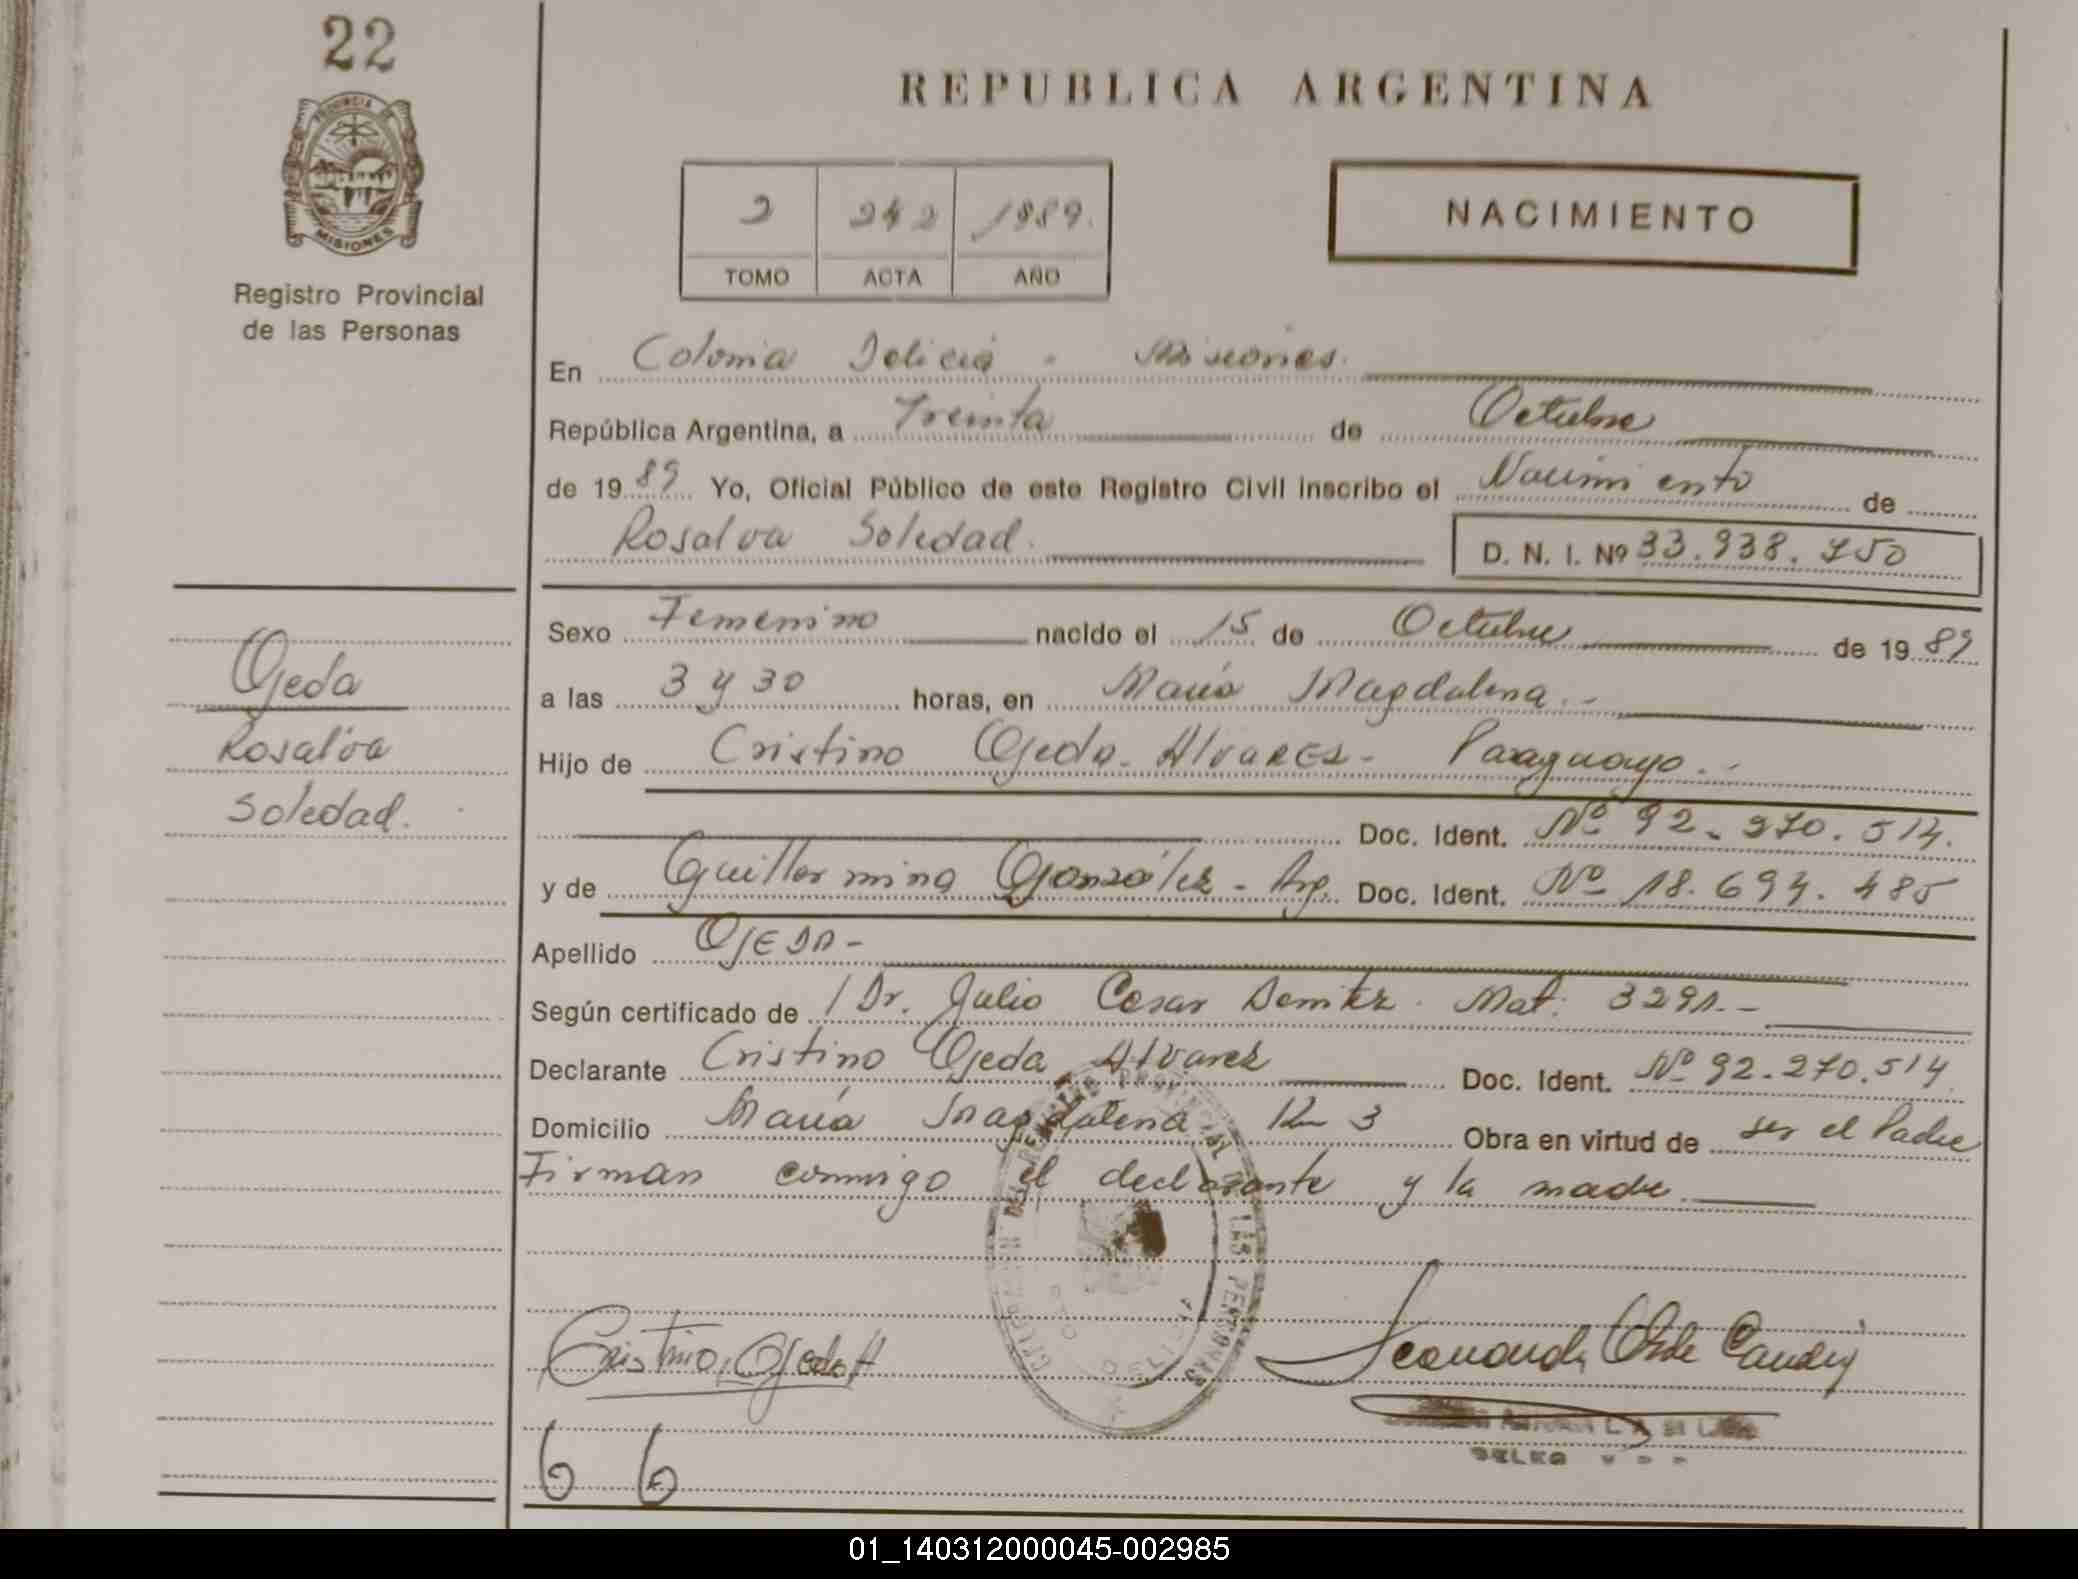 22
PROVINCIA DE
MISIONES
Registro Provincial
de las Personas
REPUBLICA ARGENTINA
2 242 1989.
TOMO ACTA AÑO
NACIMIENTO
En Colonia Delicia - Misiones.
República Argentina, a Treinta de Octubre
de 1989 Yo, Oficial Público de este Registro Civil inscribo el Nacimiento de
Rosalva Soledad. D. N. I. Nº 33.938.750
Ojeda
Rosalva
Soledad.
Sexo Femenino nacido el 15 de Octubre de 1989
a las 3 y 30 horas, en María Magdalena.-
Hijo de Cristino Ojeda-Alvarez- Paraguayo.-
Doc. Ident. Nº 92.270.514.
y de Guillermina González - Arg. Doc. Ident. Nº 18.694.485
Apellido OJEDA-
Según certificado de / Dr. Julio Cesar Benitez. Mat. 3291.-
Declarante Cristino Ojeda Alvarez Doc. Ident. Nº 92.270.514
Domicilio María Magdalena Km 3 Obra en virtud de ser el Padre
Firman conmigo el declarante y la madre
Cristino Ojeda A
01_140312000045-002985